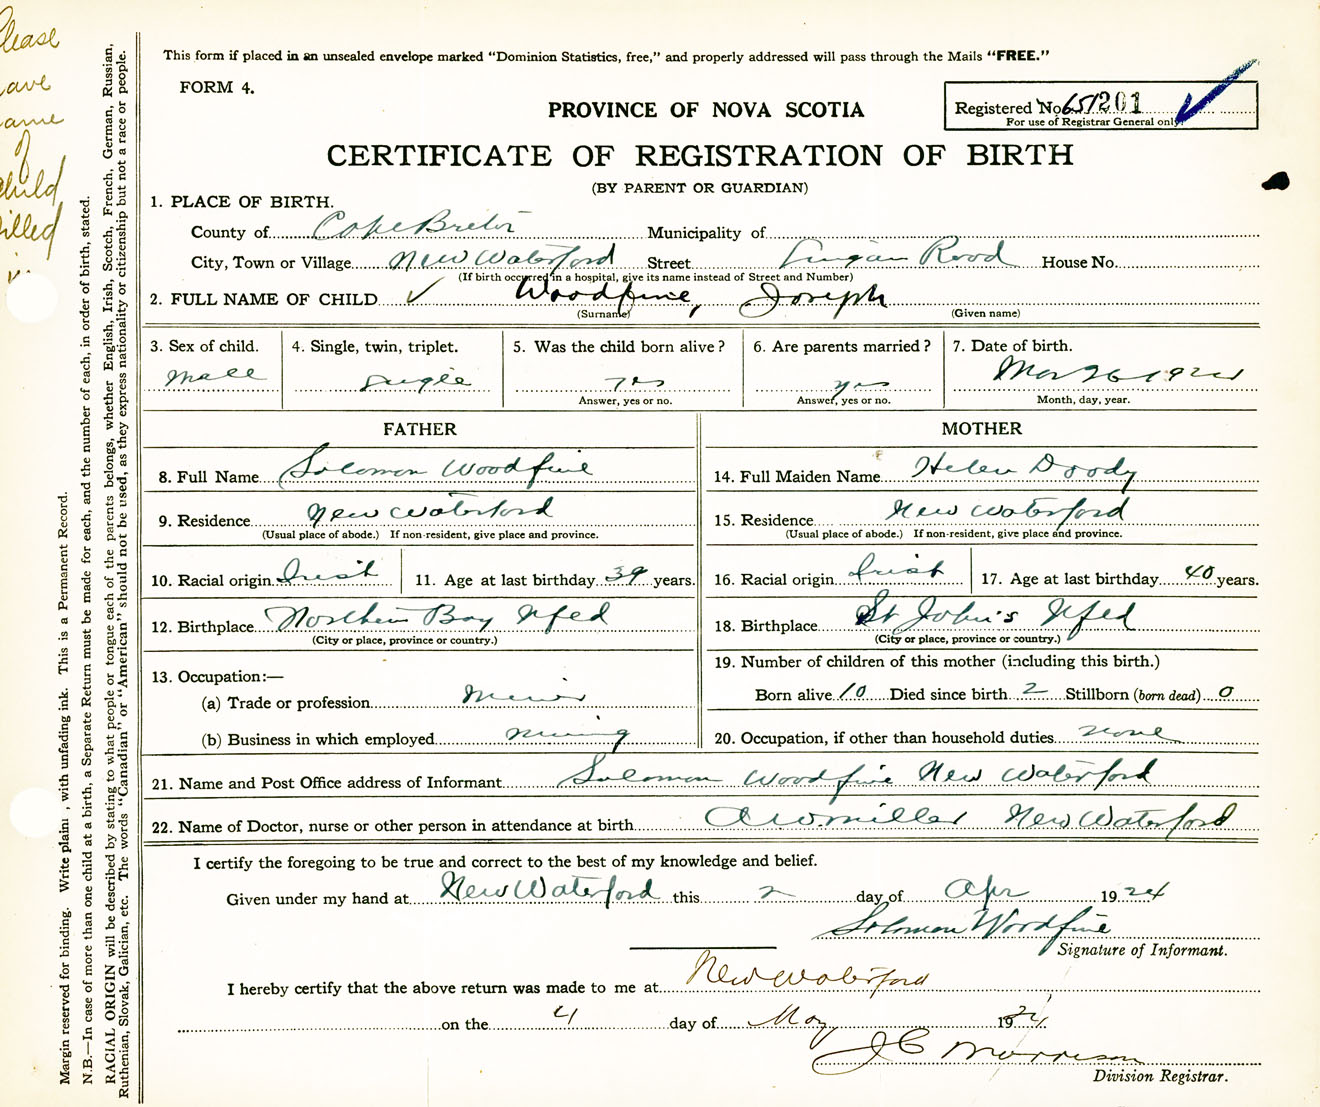 This form if placed in an unsealed envelope marked "Dominion Statistics, free," and properly addressed will pass through the Mails "FREE."
FORM 4.
Registered No. 651201
For use of Registrar General only.
PROVINCE OF NOVA SCOTIA
CERTIFICATE OF REGISTRATION OF BIRTH
(BY PARENT OR GUARDIAN)
1. PLACE OF BIRTH.
County of Cape Breton Municipality of
City, Town or Village New Waterford Street Lingan Road House No.
(If birth occurred in a hospital, give its name instead of Street and Number)
2. FULL NAME OF CHILD ✓ Woodfine, Joseph
(Surname) (Given name)
3. Sex of child. 4. Single, twin, triplet. 5. Was the child born alive? 6. Are parents married? 7. Date of birth.
Male Single yes yes Mar 26 1924
Answer, yes or no. Answer, yes or no. Month, day, year.
FATHER MOTHER
8. Full Name Solomon Woodfine 14. Full Maiden Name Helen Doody
9. Residence New Waterford 15. Residence New Waterford
(Usual place of abode.) If non-resident, give place and province. (Usual place of abode.) If non-resident, give place and province.
10. Racial origin Irish 11. Age at last birthday 39 years. 16. Racial origin Irish 17. Age at last birthday 40 years.
12. Birthplace Northern Bay Nfld 18. Birthplace St John's Nfld
(City or place, province or country.) (City or place, province or country.)
13. Occupation:— 19. Number of children of this mother (including this birth.)
(a) Trade or profession Miner Born alive 10 Died since birth 2 Stillborn (born dead) 0
(b) Business in which employed mining 20. Occupation, if other than household duties none
21. Name and Post Office address of Informant Solomon Woodfine New Waterford
22. Name of Doctor, nurse or other person in attendance at birth A W. Miller New Waterford
I certify the foregoing to be true and correct to the best of my knowledge and belief.
Given under my hand at New Waterford this 2 day of Apr 1924
Solomon Woodfine
Signature of Informant.
I hereby certify that the above return was made to me at New Waterford
on the 4 day of May 1924.
J C Morrison
Division Registrar.
Margin reserved for binding. Write plain , with unfading ink. This is a Permanent Record.
N.B.—In case of more than one child at a birth, a Separate Return must be made for each, and the number of each, in order of birth, stated.
RACIAL ORIGIN will be described by stating to what people or tongue each of the parents belongs, whether English, Irish, Scotch, French, German, Russian,
Ruthenian, Slovak, Galician, etc. The words "Canadian" or "American" should not be used, as they express nationality or citizenship but not a race or people.
lease
ave
ame
of
child
filled
in